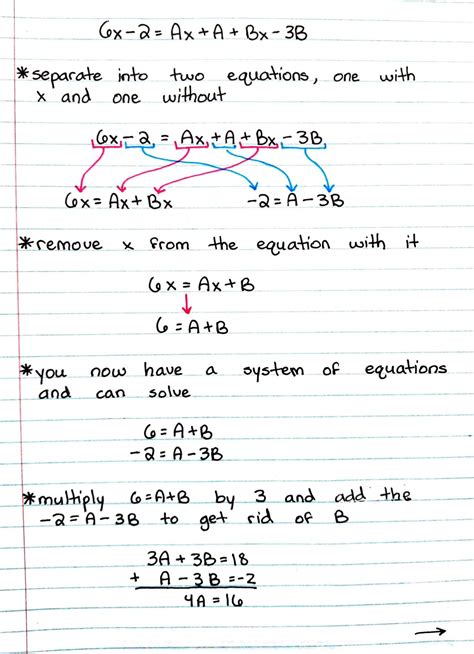 6x-2 = Ax+A+Bx-3B
*separate into two equations, one with
x and one without
6x-2 = Ax+A+Bx-3B
6x=Ax+Bx -2=A-3B
*remove x from the equation with it
6x=Ax+B
6=A+B
*you now have a system of equations
and can solve
6=A+B
-2=A-3B
*multiply 6=A+B by 3 and add the
-2=A-3B to get rid of B
3A+3B=18
+ A-3B=-2
4A=16